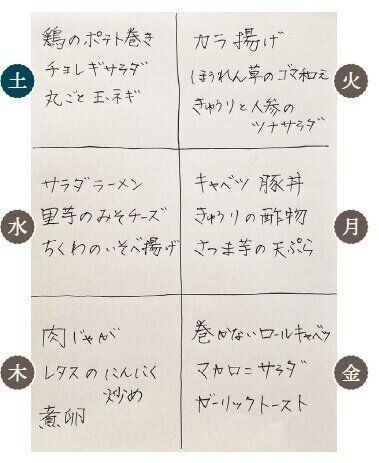 土
鶏のポテト巻き
チョレギサラダ
丸ごと玉ネギ
火
カラ揚げ
ほうれん草のゴマ和え
きゅうりと人参の
ツナサラダ
水
サラダラーメン
里芋のみそチーズ
ちくわのいそべ揚げ
月
キャベツ豚丼
きゅうりの酢物
さつま芋の天ぷら
木
肉じゃが
レタスのにんにく
炒め
煮卵
金
巻かないロールキャベツ
マカロニサラダ
ガーリックトースト